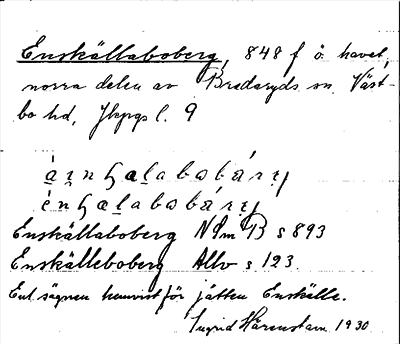 Enskällaboberg, 848 f ö. havet,
norra delen av Bredaryds sn. Väst-
bo hd, Jkpgs l. 9
Enskällaboberg NSm B s 893
Enskälleboberg Allv s 123.
Enl. sägnen hemvist för jätten Enskälle.
Ingrid Härenstam 1930